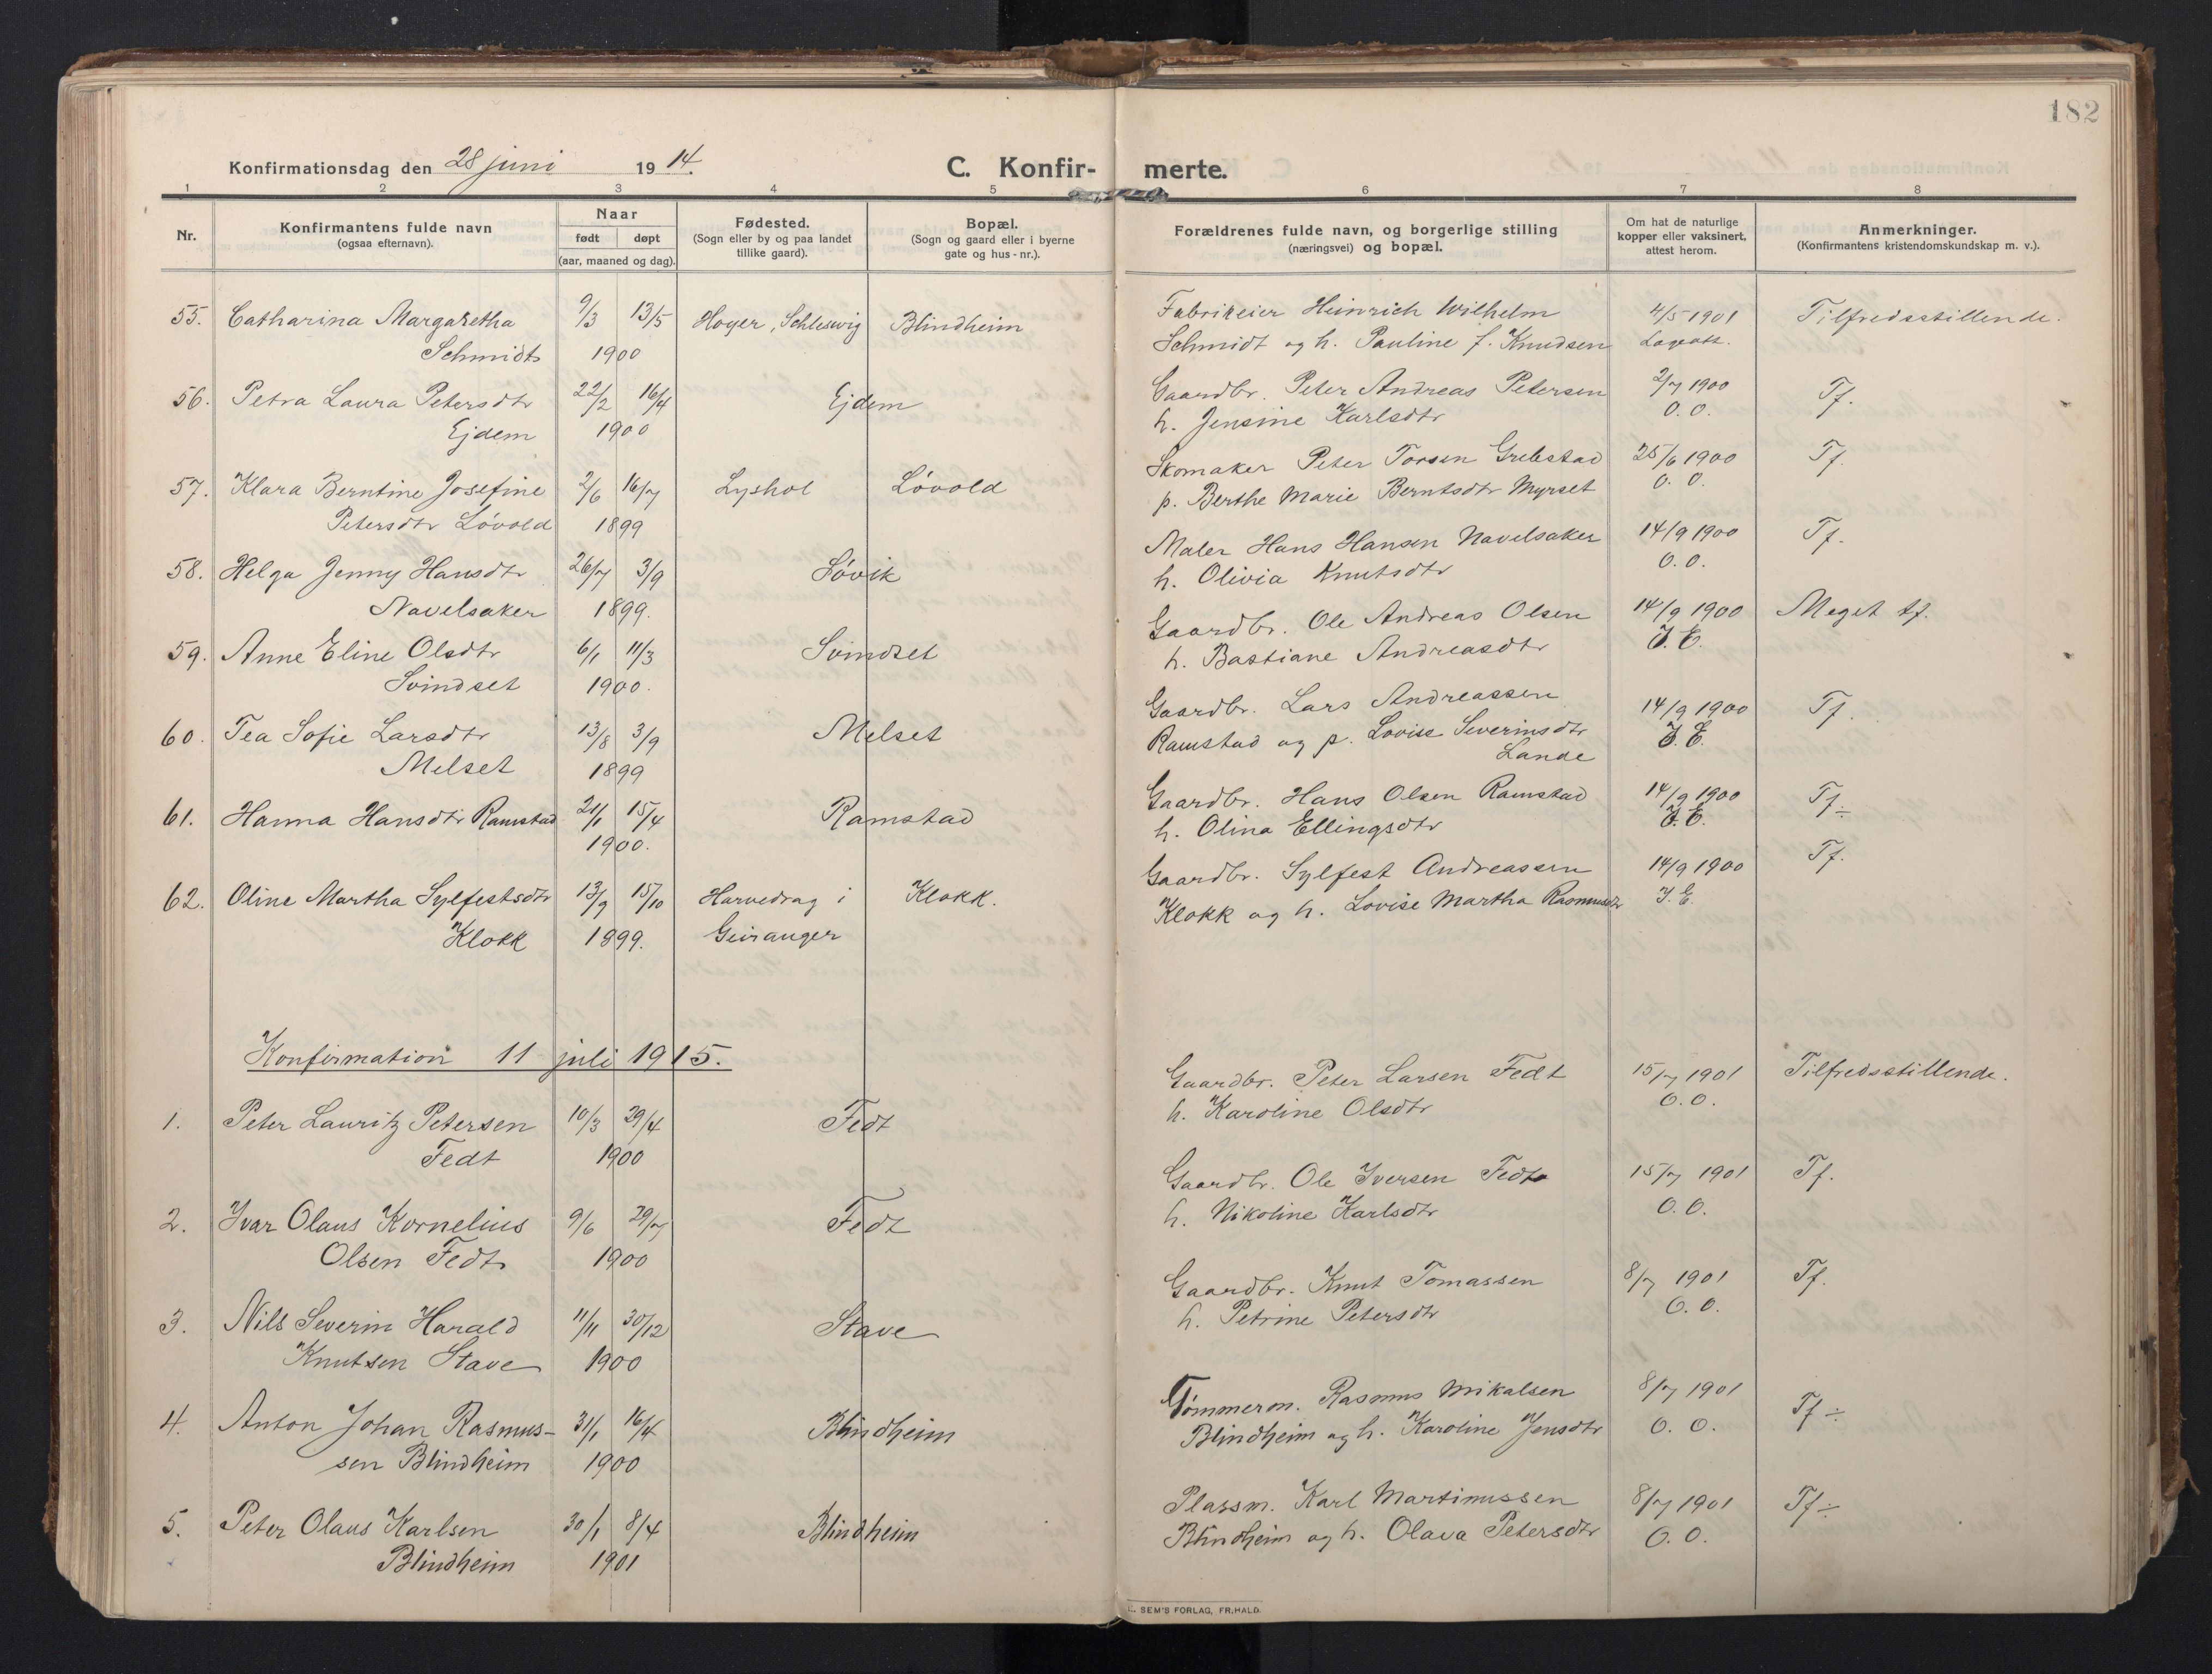 182
Konfirmationsdag den 28 juni 1914.
C. Konfir-
merte.
1 2 3 4 5 6 7 8
Nr.
Konfirmantens fulde navn
(ogsaa efternavn).
Naar
født døpt
(aar, maaned og dag).
Fødested.
(Sogn eller by og paa landet
tillike gaard).
Bopæl.
(Sogn og gaard eller i byerne
gate og hus-nr.).
Forældrenes fulde navn, og borgerlige stilling
(næringsvei) og bopæl.
Om hat de naturlige
kopper eller vaksinert,
attest herom.
Anmerkninger.
(Konfirmantens kristendomskundskap m. v.).
55. Catharina Margaretha 9/3 13/5 Hoyer, Schleswig Blindheim
Schmidt 1900
Fabrikeier Heinrich Wilhelm 4/5 1901 Tilfredsstillende.
Schmidt og h. Pauline f. Knudsen
56. Petra Laura Petersdtr 22/2 16/4 Ejdem
Ejdem 1900
Gaardbr. Peter Andreas Petersen 2/7 1900 Tf.
h. Jensine Karlsdtr O. O.
57. Klara Berntine Josefine 2/6 16/7 Lyshol Løvold
Petersdtr Løvold 1899
Skomaker Peter Torsen Grebstad 25/6 1900 Tf.
p. Berthe Marie Berntsdtr Myrset O. O.
58. Helga Jenny Hansdtr 26/7 3/9 Søvik
Navelsaker 1899.
Maler Hans Hansen Navelsaker 14/9 1900 Tf.
h. Olivia Knutsdtr O. O.
59. Anne Eline Olsdtr 6/1 11/3 Svindset
Svindset 1900.
Gaardbr. Ole Andreas Olsen 14/9 1900 Meget tf.
h. Bastiane Andreasdtr J. E.
60. Tea Sofie Larsdtr 13/8 3/9 Melset
Melset 1899
Gaardbr. Lars Andreassen 14/9 1900 Tf.
Ramstad og p. Lovise Severinsdtr J. E.
Lande
61. Hanna Hansdtr Ramstad 21/1 15/4 Ramstad
1900.
Gaardbr. Hans Olsen Ramstad 14/9 1900 Tf ÷
h. Olina Ellingsdtr J. E.
62. Oline Martha Sylfestsdtr 13/9 15/10 Harvedrag i Klokk.
Klokk 1899. Geiranger
Gaardbr. Sylfest Andreassen 14/9 1900 Tf.
Klokk og h. Lovise Martha Rasmusdtr J. E.
Konfirmation 11 juli 1915.
1. Peter Lauritz Petersen 10/3 29/4 Fedt
Fedt 1900
Gaardbr. Peter Larsen Fedt 15/7 1901 Tilfredsstillende.
h. Karoline Olsdtr O. O.
2. Ivar Olaus Kornelius 9/6 29/7 Fedt
Olsen Fedt 1900
Gaardbr. Ole Iversen Fedt 15/7 1901 Tf.
h. Nikoline Karlsdtr O. O.
3. Nils Severin Harald 11/11 30/12 Stave
Knutsen Stave 1900
Gaardbr. Knut Tomassen 8/7 1901 Tf.
h. Petrine Petersdtr O. O.
4. Anton Johan Rasmus- 31/1 16/4 Blindheim
sen Blindheim 1900
Tømmerm. Rasmus Mikalsen 8/7 1901 Tf ÷
Blindheim og h. Karoline Jensdtr O. O.
5. Peter Olaus Karlsen 30/1 8/4 Blindheim
Blindheim 1901
Plassm. Karl Martinussen 8/7 1901 Tf ÷
Blindheim og h. Olava Petersdtr O. O.
SEM'S FORLAG, FR.HALD.